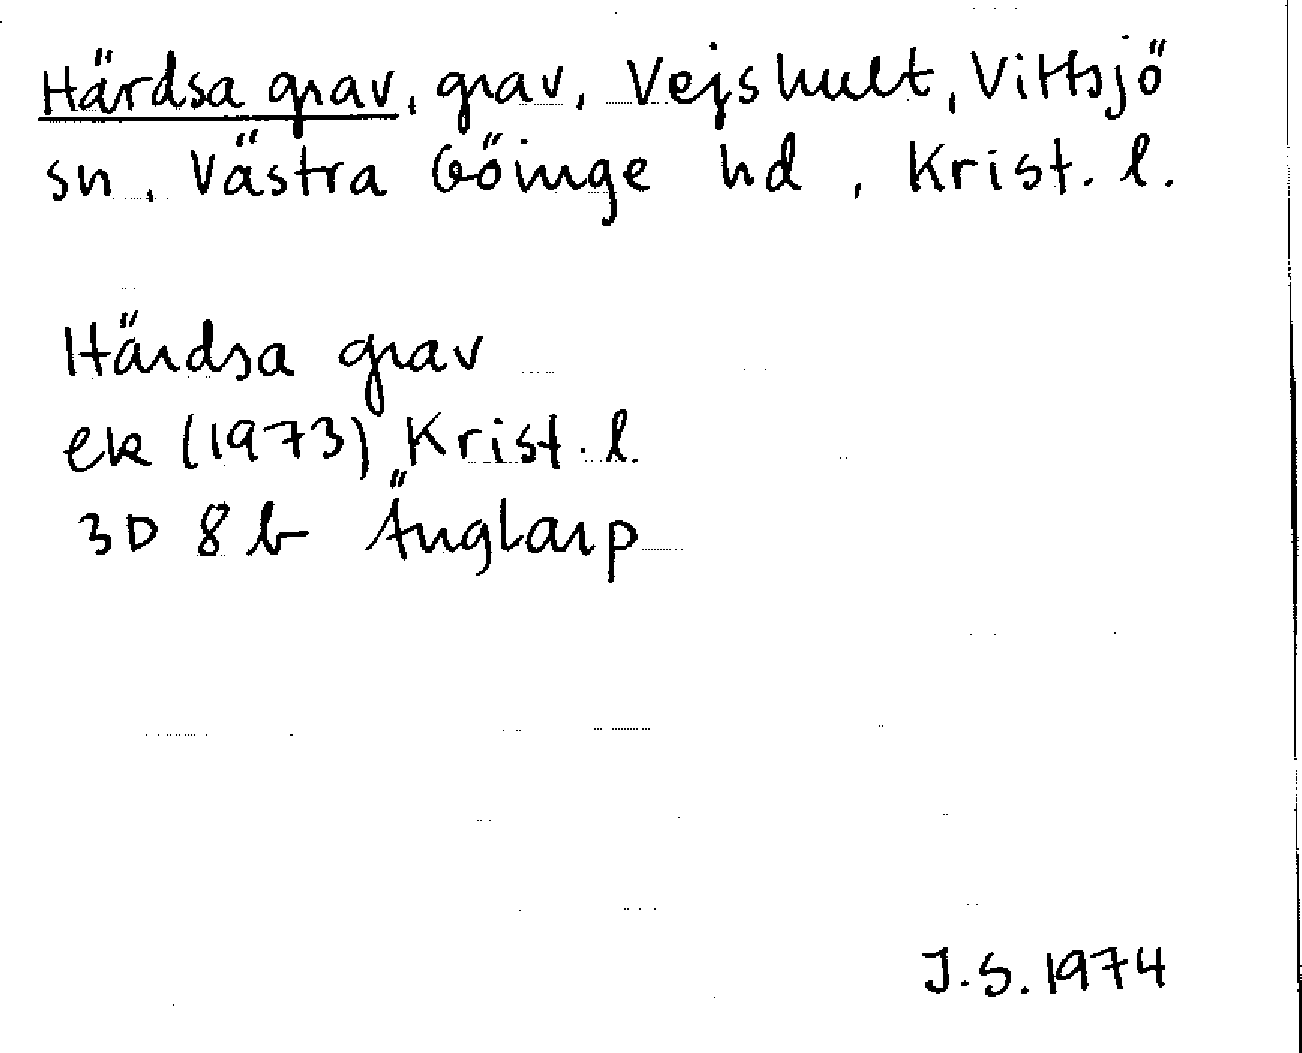 Härdsa grav, grav, Vejshult, Vittsjö
sn, Västra Göinge hd, Krist. l.
Härdsa grav
ek (1973) Krist. l.
3D 8 b Änglarp
J.S. 1974